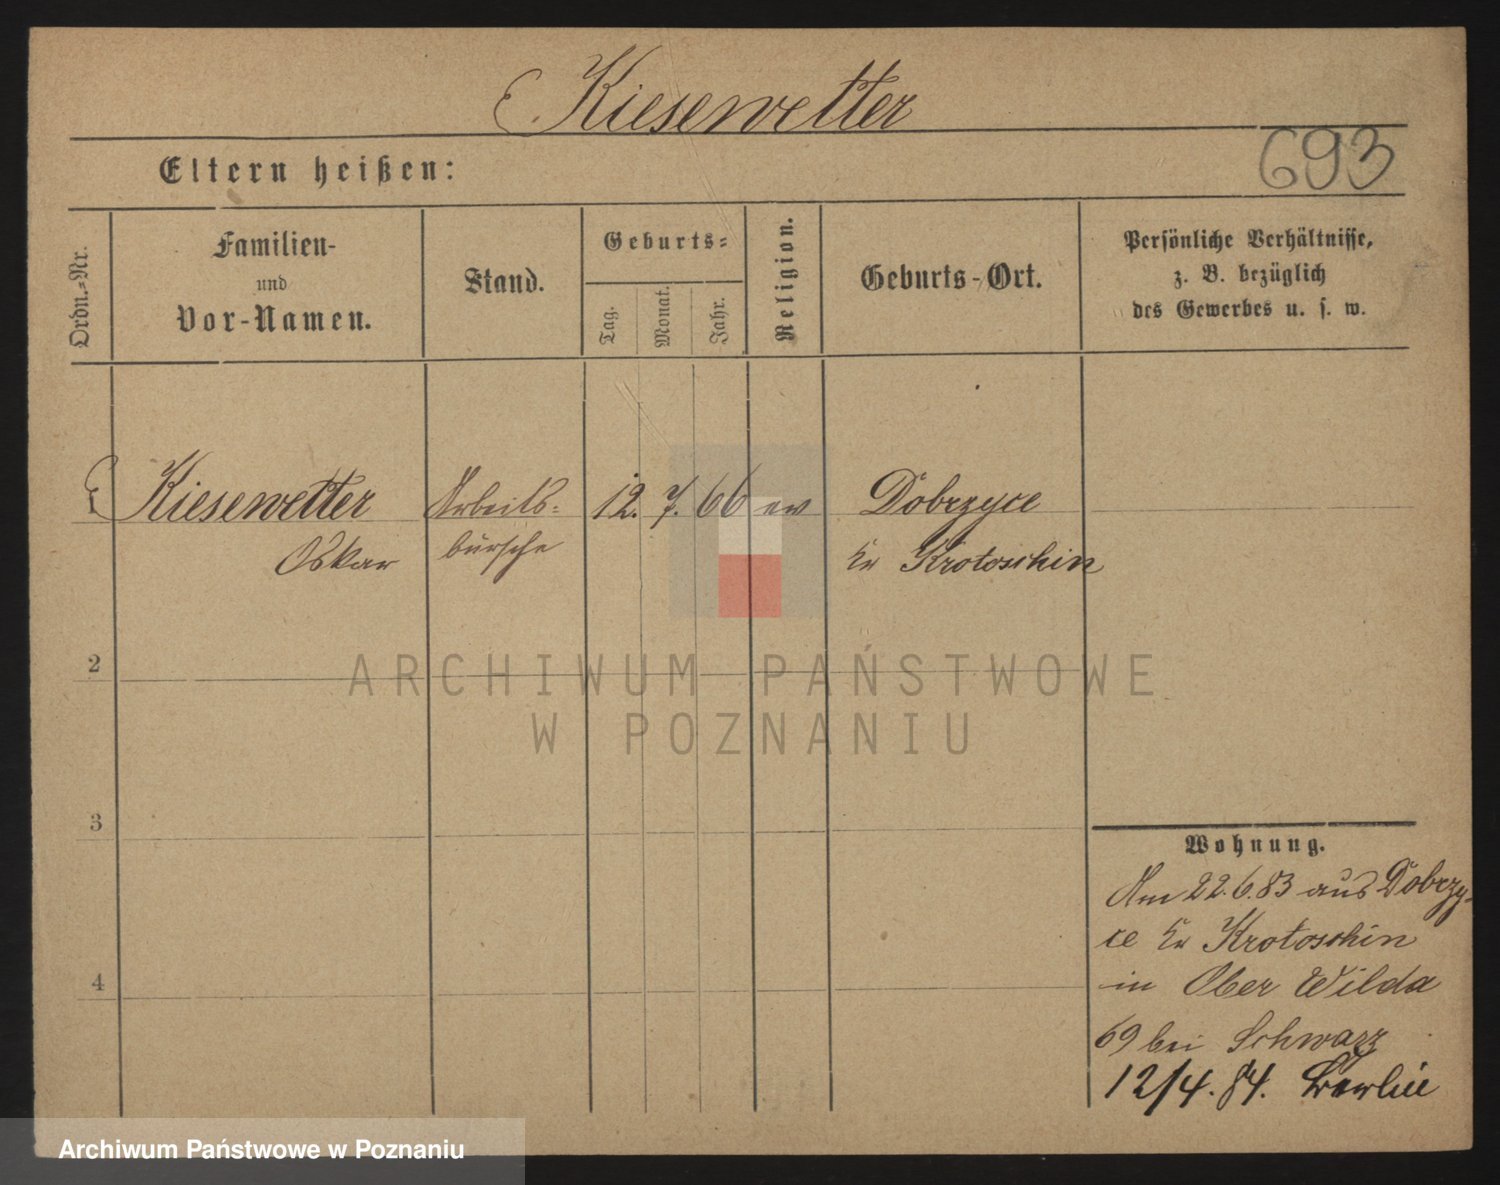 Kiesewetter
Eltern heißen:
693
Ordn.-Nr.
Familien-
und
Vor-Namen.
Stand.
Geburts-
Tag.
Monat.
Jahr.
Religion.
Geburts-Ort.
Persönliche Verhältnisse,
z. B. bezüglich
des Gewerbes u. s. w.
1 Kiesewetter Arbeits- 12. 7. 66 ev Dobrzyce
Oskar bursche Kr Krotoschin
2
ARCHIWUM PAŃSTWOWE
W POZNANIU
3
Wohnung.
Am 22.6.83 aus Dobrzy-
ce Kr Krotoschin
4
in Ober Wilda
69 bei Schwarz
12/4. 84. Berlin
Archiwum Państwowe w Poznaniu